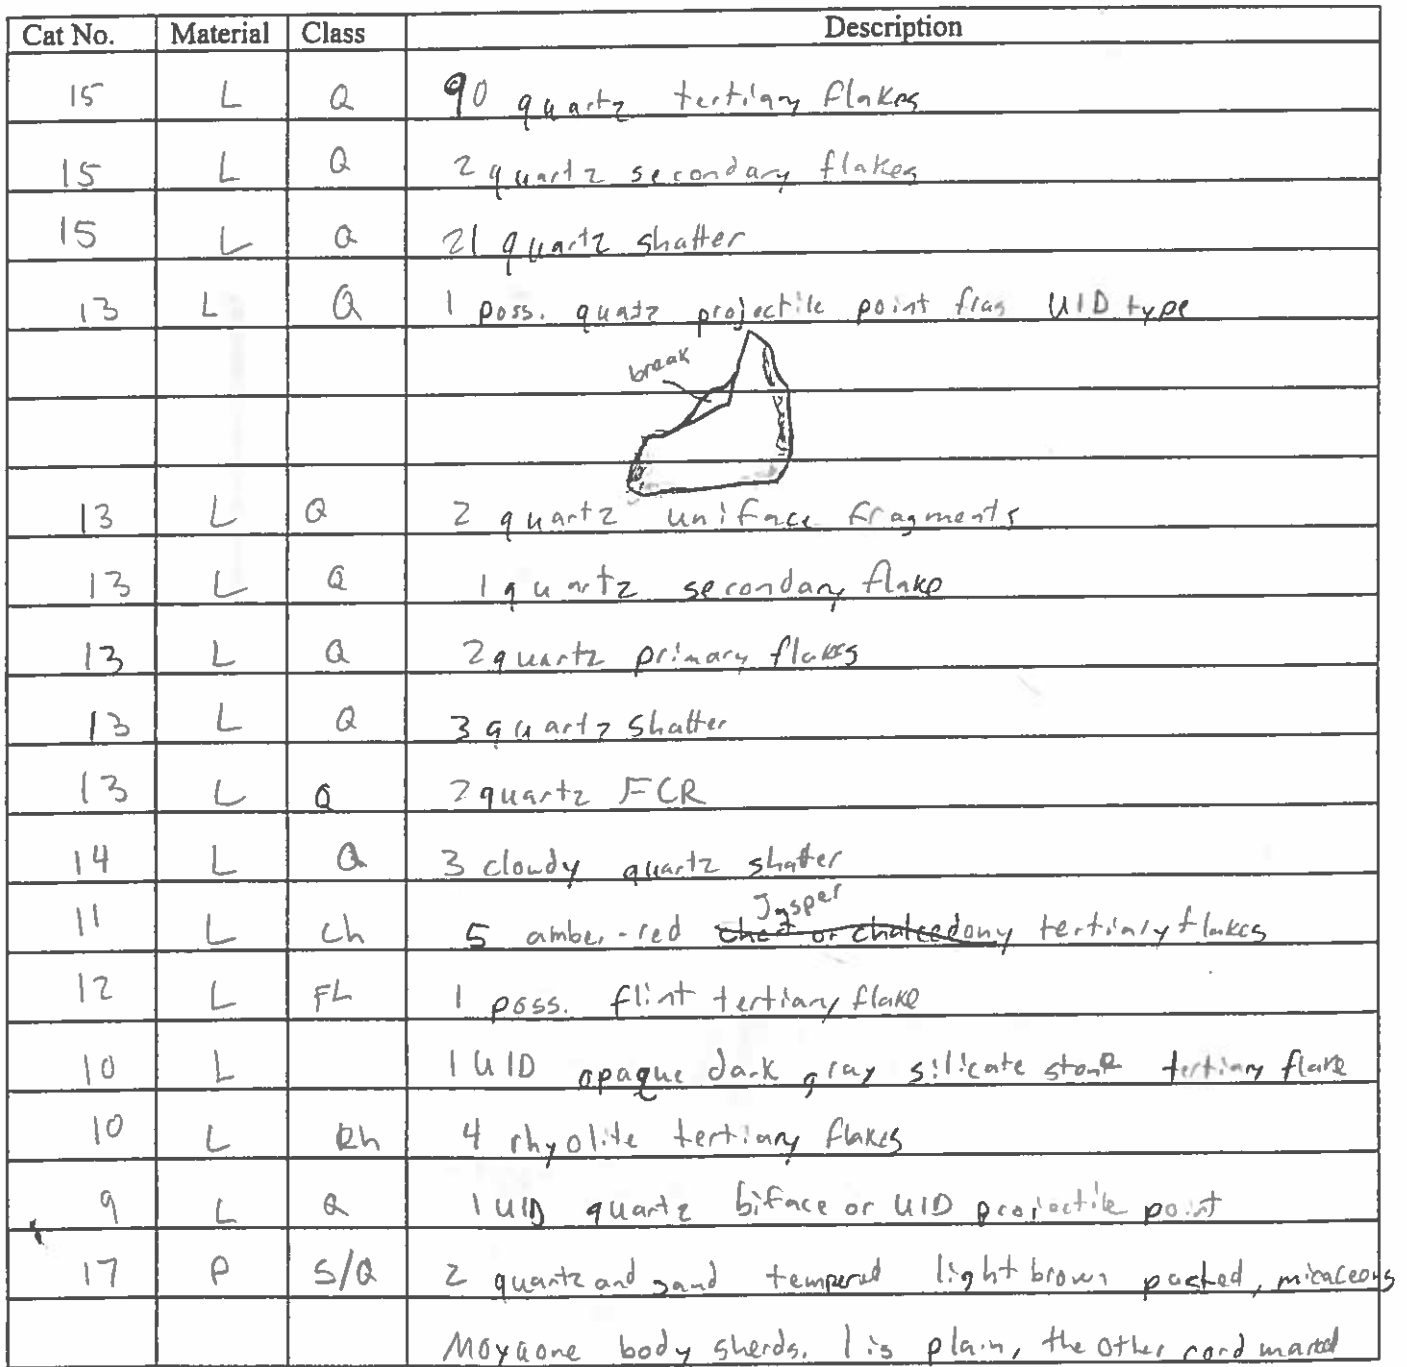 Cat No. Material Class Description
15 L Q 90 quartz tertiary flakes
15 L Q 2 quartz secondary flakes
15 L Q 21 quartz shatter
13 L Q 1 poss. quatz projectile point frag UID type
break
13 L Q 2 quartz uniface fragments
13 L Q 1 quartz secondary flake
13 L Q 2 quartz primary flakes
13 L Q 3 quartz shatter
13 L Q 2 quartz FCR
14 L Q 3 cloudy quartz shatter
Jasper
11 L Ch 5 amber-red chert or chalcedony tertiary flakes
12 L FL 1 poss. flint tertiary flake
10 L 1 UID opaque dark gray silicate stone tertiary flake
10 L Rh 4 rhyolite tertiary flakes
9 L Q 1 UID quartz biface or UID projectile point
17 P S/Q 2 quartz and sand tempered light brown pasted, micaceous
Moyaone body sherds. 1 is plain, the other cord marked